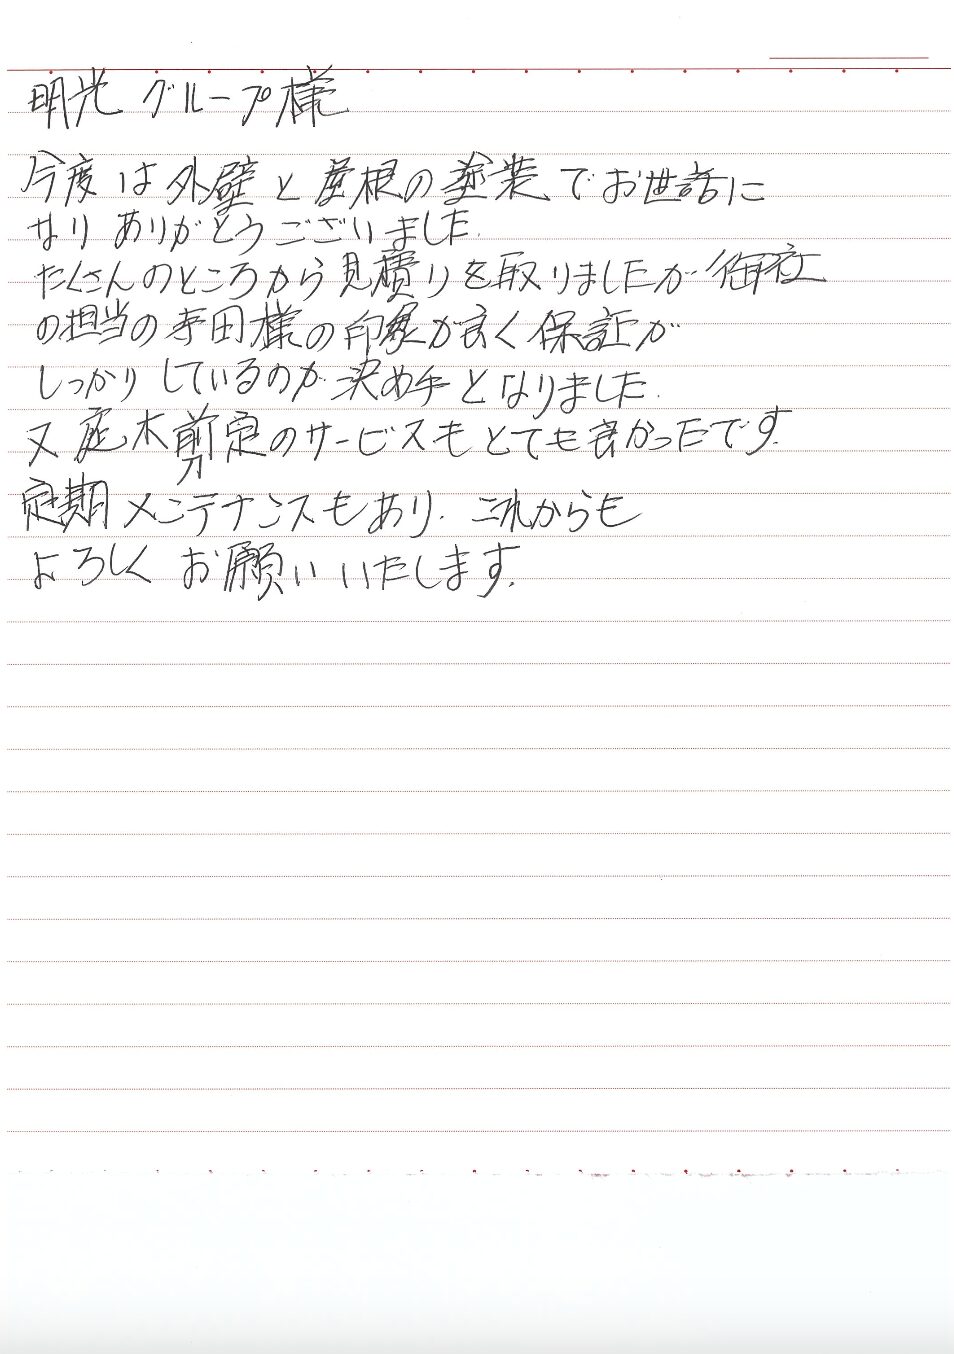 明光グループ様
今度は外壁と屋根の塗装でお世話に
なりありがとうございました.
たくさんのところから見積りを取りましたが御社
の担当の寺田様の印象が良く保証が
しっかりしているのが決め手となりました.
又庭木剪定のサービスもとても良かったです.
定期メンテナンスもあり.これからも
よろしくお願いいたします.